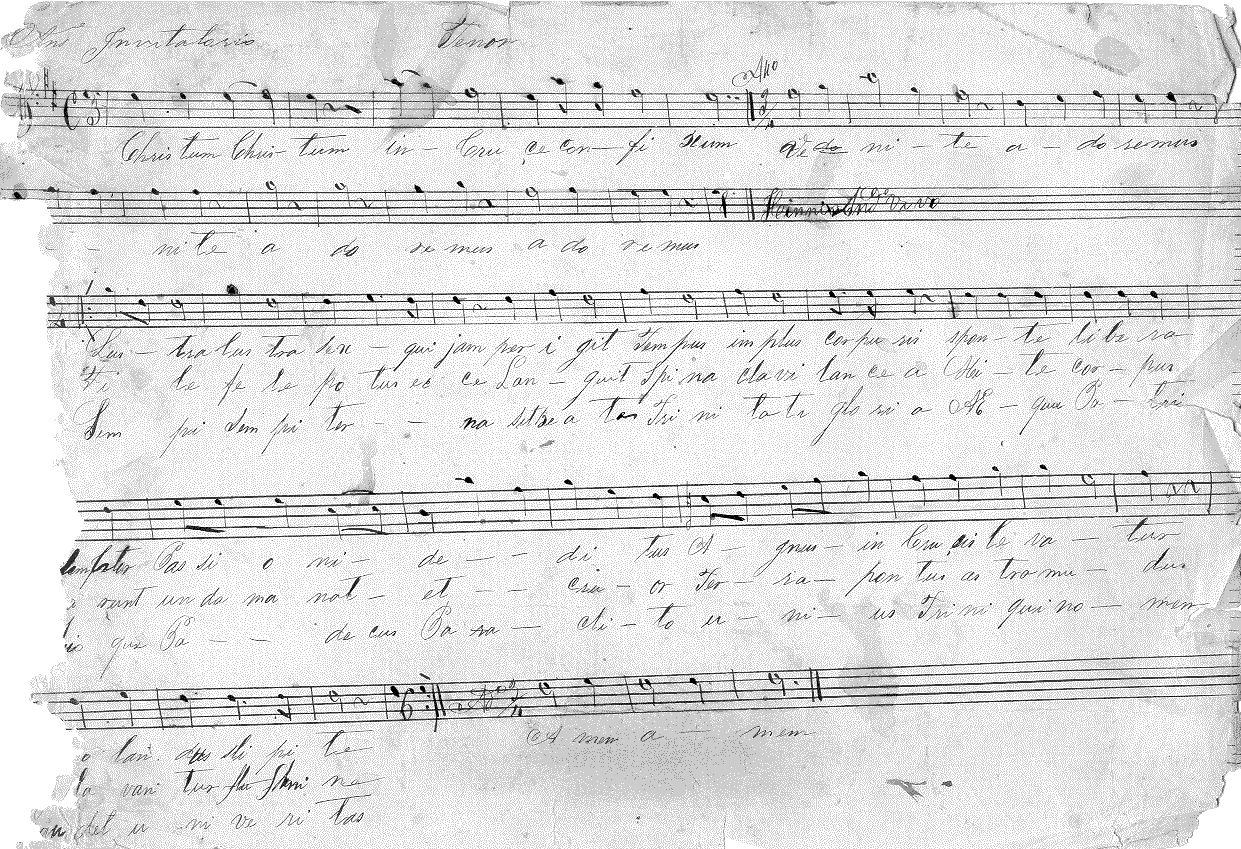 Invitatorio Tenor
Christum Chris- tum in- Cru ce con- fi xum Ve ni- te a- do remus
nite a do re mus a do re mus
Lus- tra lus tra sex- qui jam per i git Tempus implus corpu ris spon- te libe ra
le fe le po tus ec ce Lan- guit Spi na clavi lan ce a Mi- te cor- pus
Sem pi Sem pi ter - - na sit Bea tae Tri ni ta ti glo ri a AE- qua Pa- tri
Pas si o ni- de - - di tus A- gnus- in Cru cis le va- tur
rant un da ma nat- et - - cru- or Ter- ra- pon tus as tra mu- dus
que Pa - - de cus Pa ra- cli- to u- ni- us Tri ni qui no- men
lan. dus sti pi te
A men a- men
la van tur flu mi ne
det u ni ve ri tas